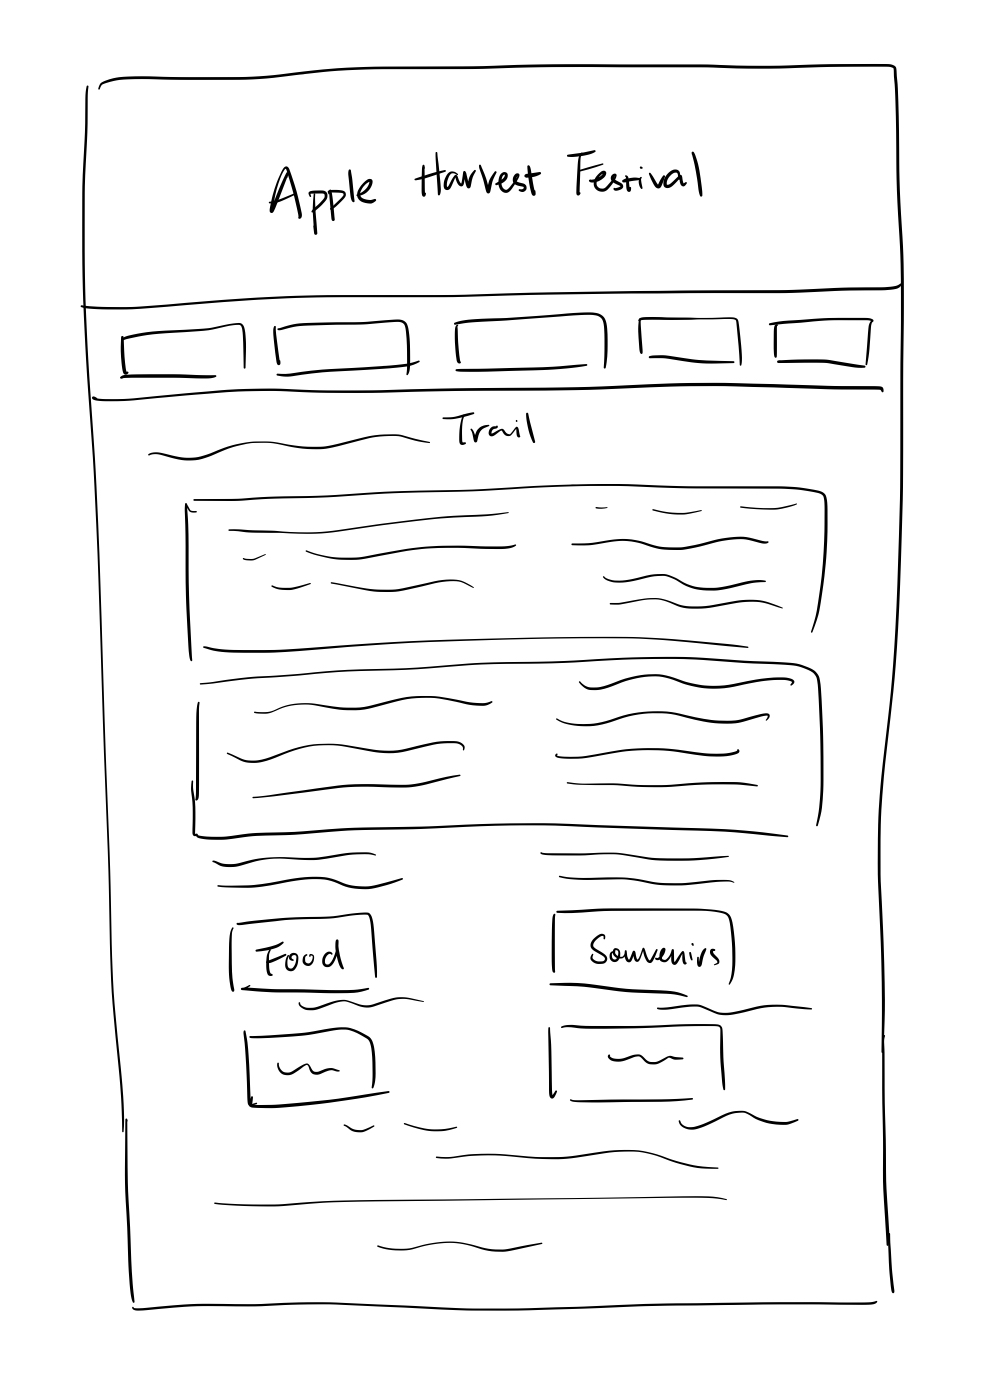 Apple Harvest Festival
Trail
Food
Souvenirs